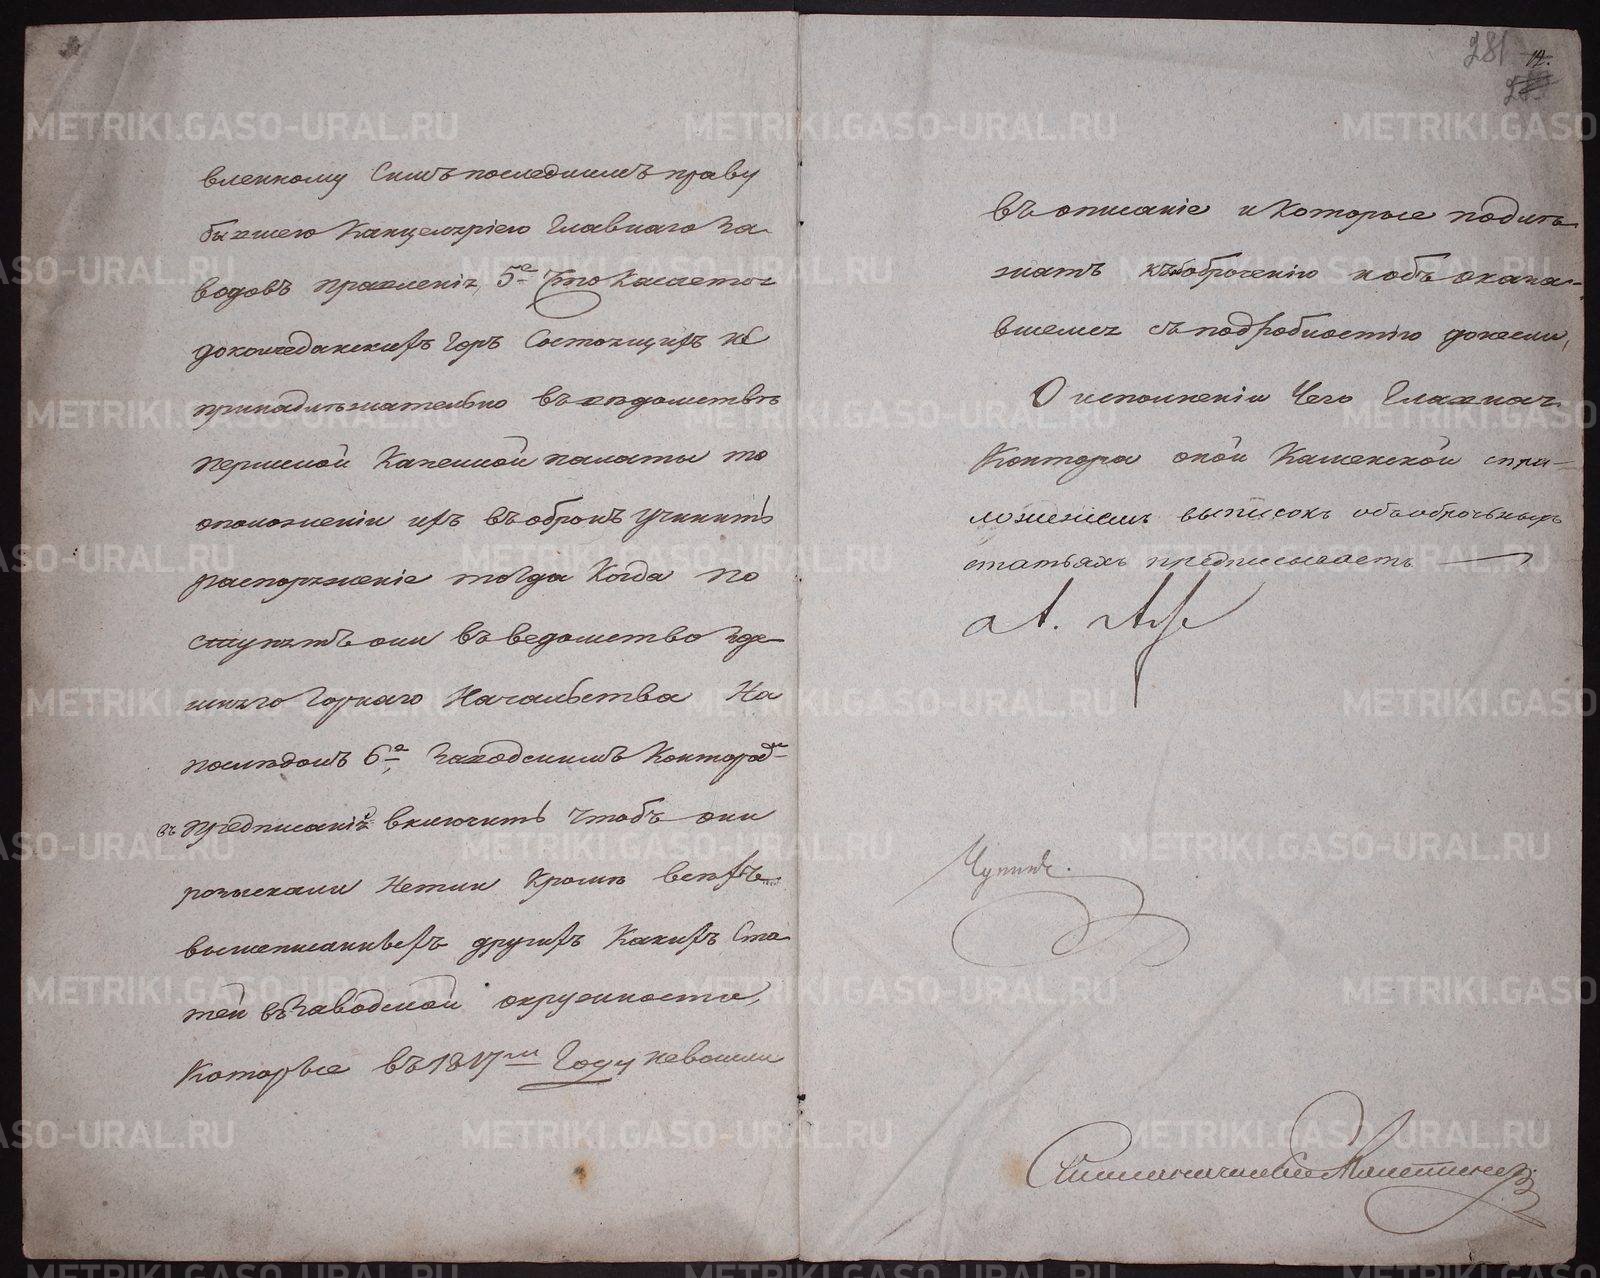 281 12.
вленному Симъ последнимъ праву
бывшею Канцеляріею Главнаго За
водовъ правленія, 5е Что Касается
до Кунгурскихъ Горъ Состоящихъ не
принадлѣжательно въ вѣдомствѣ
пермской Казенной палаты то
оположеніи ихъ въ оброкъ учинить
распоряженіе тогда Когда по
ступятъ они въ ведомство здѣ
шняго Горнаго Начальства На
послѣдокъ 6е, Заводскимъ Конторамъ
въ предписаніе включить чтобъ они
розыскали Нетли Кромѣ всехъ
вышеписанныхъ другихъ Какихъ Ста
тей въ Заводской окружности,
Которые въ 1817м Году невошли
въ описаніе и Которые подлѣ
жатъ къ оброченію и объ оказа-
вшемся съ подробностію донесли,
О исполненіи Чего Главная
Контора оной Каменской спри-
ложеніемъ выписокъ объ оброчныхъ
статьяхъ предписываетъ
Чупинъ.